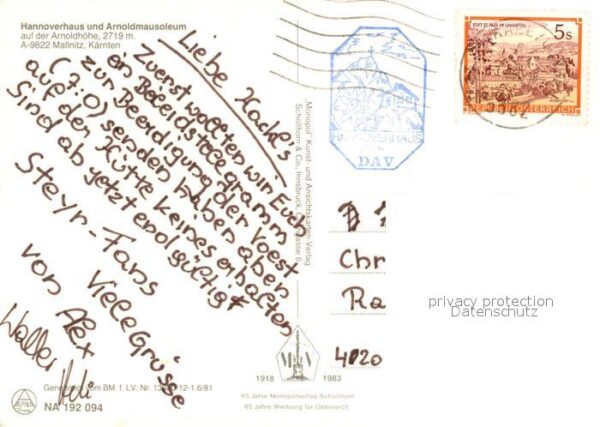 Hannoverhaus und Arnoldmausoleum
auf der Arnoldhöhe, 2719 m.
A-9822 Mallnitz, Kärnten
Liebe Hackl's
Zuerst wollten wir Euch
ein Beileidstelegramm
zur Beerdigung der Voest
(7:0) senden, haben aber
auf der Hütte keines erhalten
Sind ab jetzt endgültig
Steyr-Fans
Viele Grüsse
von Alex
Walter
"Monopol" Kunst- und Ansichtskarten-Verlag
Schöllhorn & Co., Innsbruck,
HANNOVERHAUS
DAV
STIFT ST. PAUL IM LAVANTTAL
5s
REPUBLIK ÖSTERREICH
Chr
Ra
4020
privacy protection
Datenschutz
1918 1983
65 Jahre Monopolverlag Schöllhorn
65 Jahre Werbung für Österreich
vom BM. f. LV. Nr.
NA 192 094